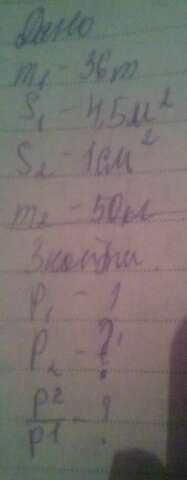 Дано
m₁ - 36 т
S₁ - 4,5 м²
S₂ - 1 см²
m₂ - 50 кг
Знайти
P₁ - ?
P₂ - ?
P2/P1 - ?